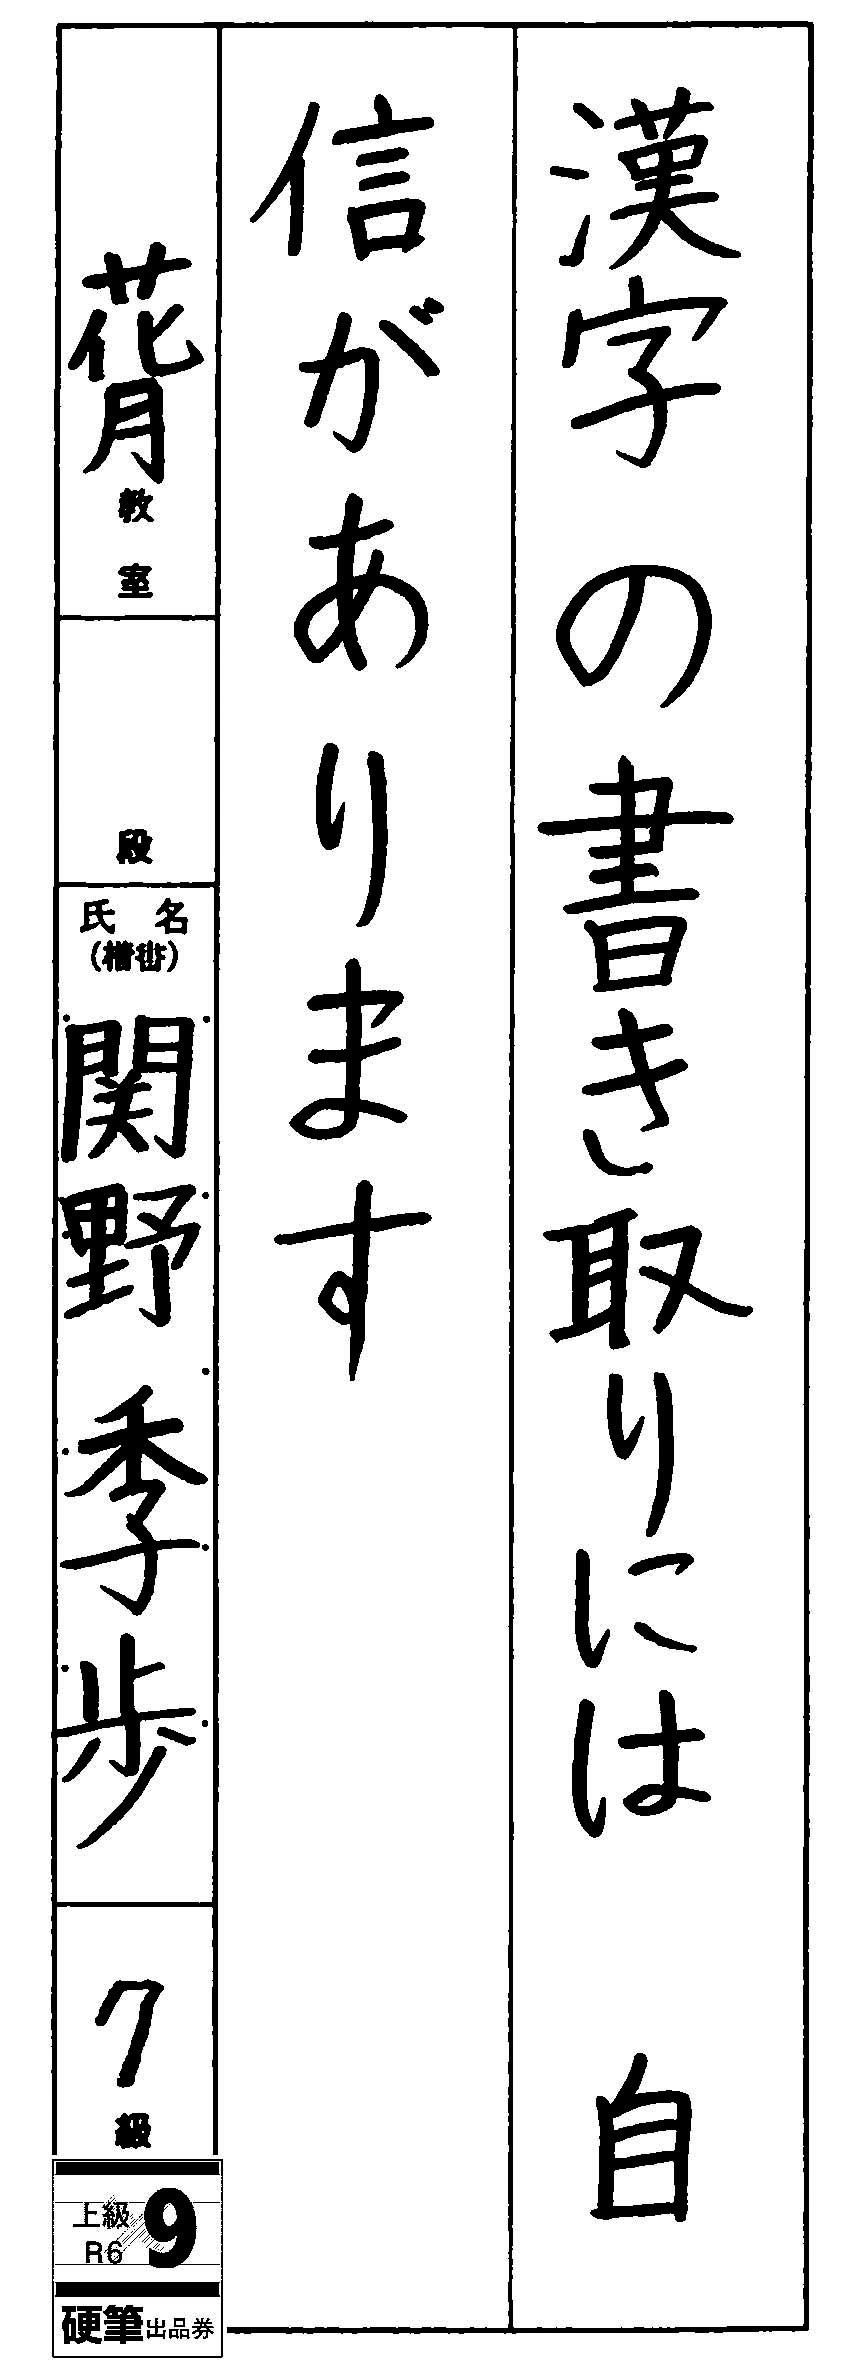 漢字の書き取りには　自
信があります
花背教室
段
氏名
(楷書)
関野季歩
7級
上級
R6
9
硬筆出品券